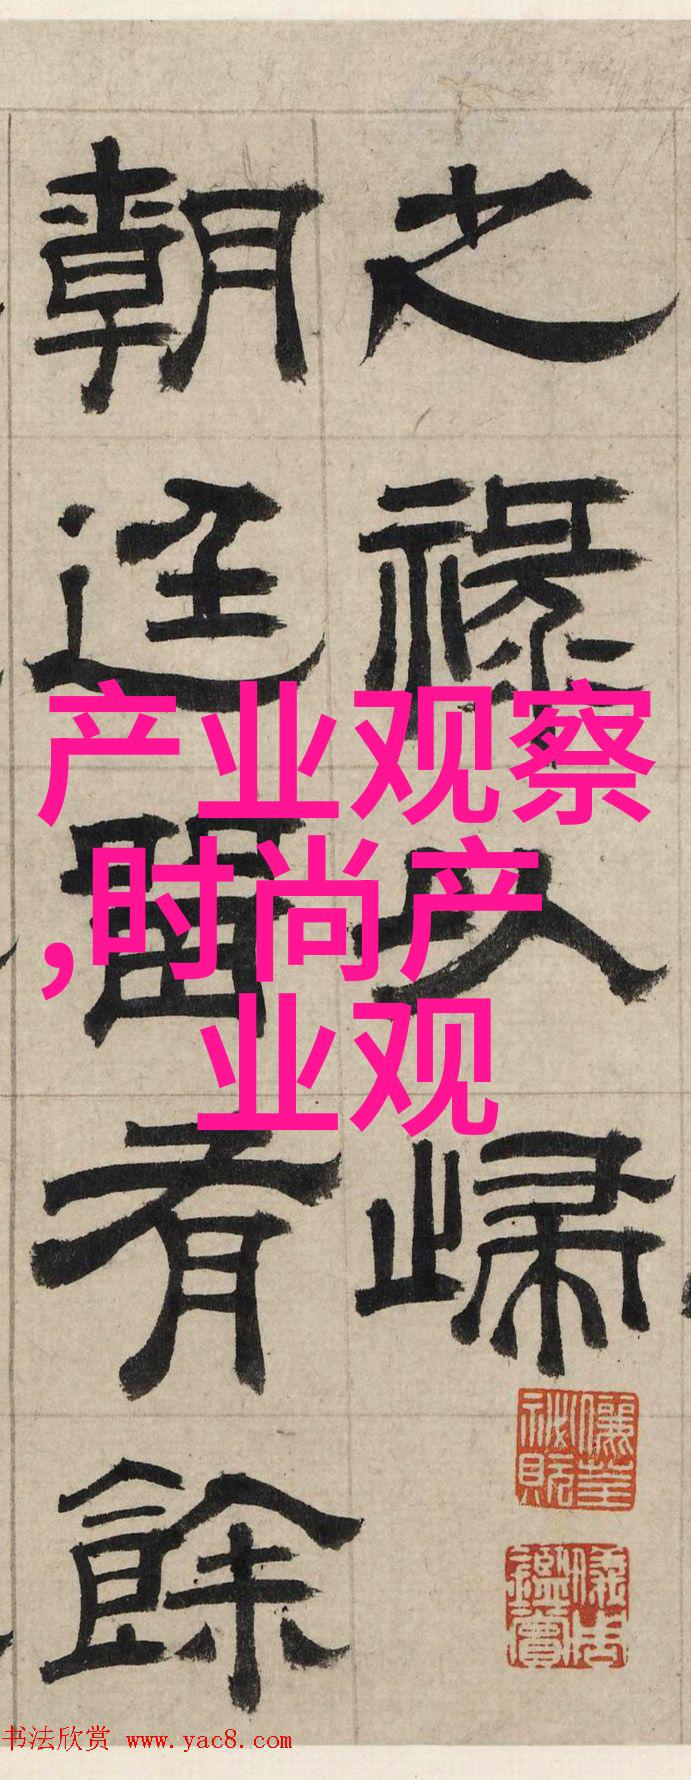 之祿以歸
朝廷留有餘
产业观察
,时尚产
业观
书法欣赏 www.yac8.com